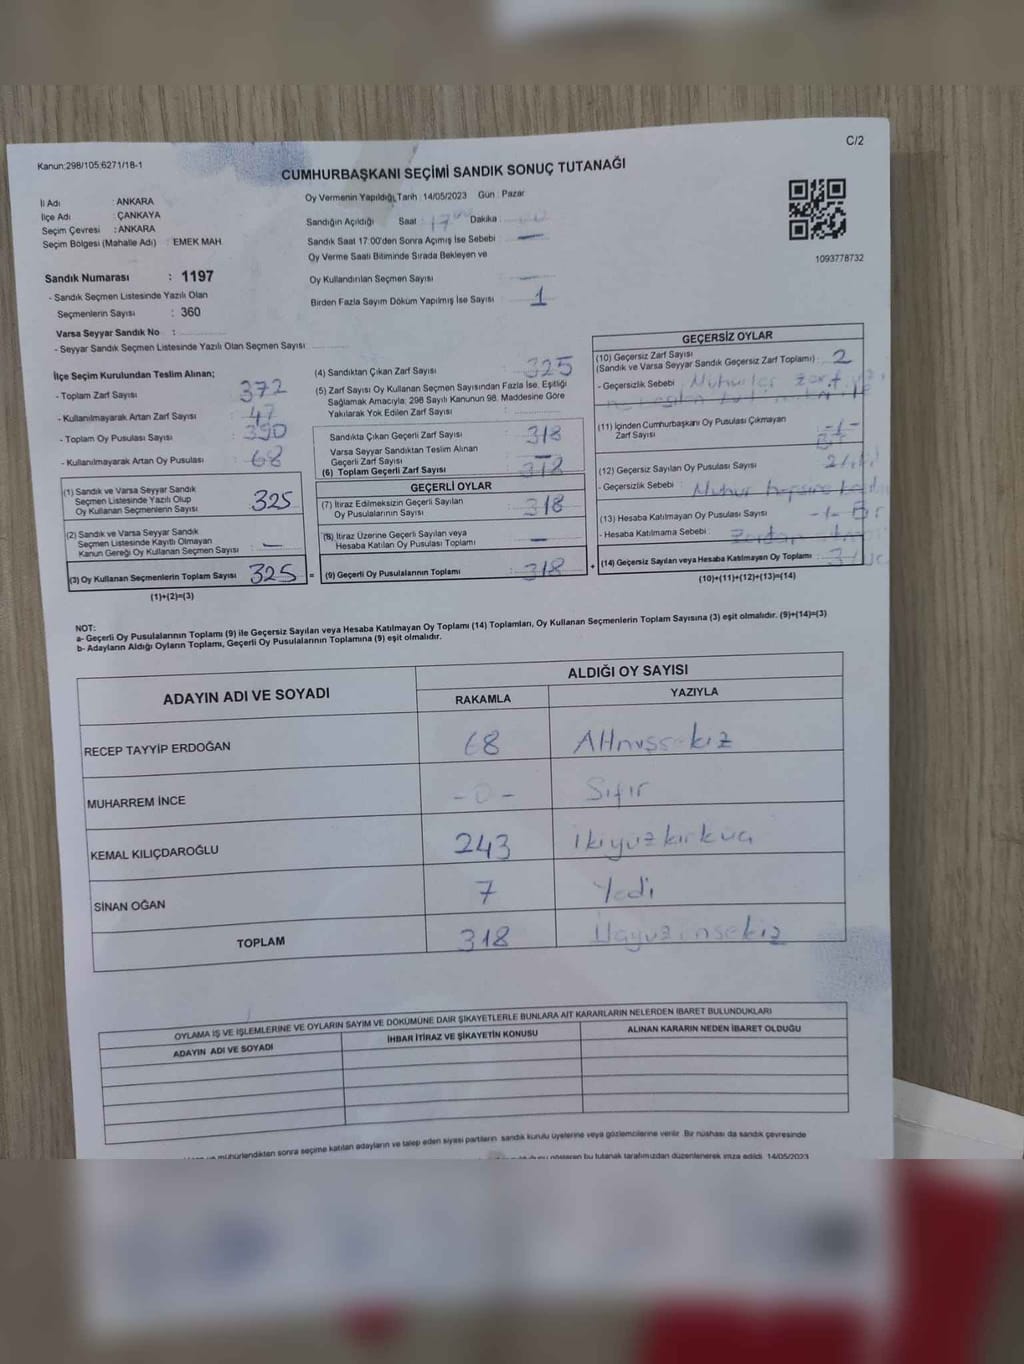 C/2
Kanun:298/105;6271/18-1
CUMHURBAŞKANI SEÇİMİ SANDIK SONUÇ TUTANAĞI
İl Adı : ANKARA
İlçe Adı : ÇANKAYA
Seçim Çevresi : ANKARA
Seçim Bölgesi (Mahalle Adı) : EMEK MAH.
Sandık Numarası : 1197
- Sandık Seçmen Listesinde Yazılı Olan
Seçmenlerin Sayısı : 360
Varsa Seyyar Sandık No :
- Seyyar Sandık Seçmen Listesinde Yazılı Olan Seçmen Sayısı
Oy Vermenin Yapıldığı Tarih : 14/05/2023 Gün : Pazar
Sandığın Açıldığı Saat : 17 Dakika :
Sandık Saat 17:00'den Sonra Açımış İse Sebebi : —
Oy Verme Saati Bitiminde Sırada Bekleyen ve
Oy Kullandırılan Seçmen Sayısı : —
Birden Fazla Sayım Döküm Yapılmış İse Sayısı : 1
1093778732
İlçe Seçim Kurulundan Teslim Alınan;
- Toplam Zarf Sayısı : 372
- Kullanılmayarak Artan Zarf Sayısı : 47
- Toplam Oy Pusulası Sayısı : 390
- Kullanılmayarak Artan Oy Pusulası : 68
(1) Sandık ve Varsa Seyyar Sandık
Seçmen Listesinde Yazılı Olup
Oy Kullanan Seçmenlerin Sayısı : 325
(2) Sandık ve Varsa Seyyar Sandık
Seçmen Listesinde Kayıtlı Olmayan
Kanun Gereği Oy Kullanan Seçmen Sayısı : —
(3) Oy Kullanan Seçmenlerin Toplam Sayısı : 325 =
(1)+(2)=(3)
(4) Sandıktan Çıkan Zarf Sayısı : 325
(5) Zarf Sayısı Oy Kullanan Seçmen Sayısından Fazla İse, Eşitliği
Sağlamak Amacıyla, 298 Sayılı Kanunun 98. Maddesine Göre
Yakılarak Yok Edilen Zarf Sayısı :
Sandıkta Çıkan Geçerli Zarf Sayısı : 318
Varsa Seyyar Sandıktan Teslim Alınan
Geçerli Zarf Sayısı : —
(6) Toplam Geçerli Zarf Sayısı : 318
GEÇERLİ OYLAR
(7) İtiraz Edilmeksizin Geçerli Sayılan
Oy Pusulalarının Sayısı : 318
(8) İtiraz Üzerine Geçerli Sayılan veya
Hesaba Katılan Oy Pusulası Toplamı : —
(9) Geçerli Oy Pusulalarının Toplamı : 318 +
GEÇERSİZ OYLAR
(10) Geçersiz Zarf Sayısı
(Sandık ve Varsa Seyyar Sandık Geçersiz Zarf Toplamı) : 2
- Geçersizlik Sebebi :
(11) İçinden Cumhurbaşkanı Oy Pusulası Çıkmayan
Zarf Sayısı : -1-
(12) Geçersiz Sayılan Oy Pusulası Sayısı : 2
- Geçersizlik Sebebi : Muhur
(13) Hesaba Katılmayan Oy Pusulası Sayısı : -1-
- Hesaba Katılmama Sebebi :
(14) Geçersiz Sayılan veya Hesaba Katılmayan Oy Toplamı :
(10)+(11)+(12)+(13)=(14)
NOT:
a- Geçerli Oy Pusulalarının Toplamı (9) ile Geçersiz Sayılan veya Hesaba Katılmayan Oy Toplamı (14) Toplamları, Oy Kullanan Seçmenlerin Toplam Sayısına (3) eşit olmalıdır. (9)+(14)=(3)
b- Adayların Aldığı Oyların Toplamı, Geçerli Oy Pusulalarının Toplamına (9) eşit olmalıdır.
ADAYIN ADI VE SOYADI
ALDIĞI OY SAYISI
RAKAMLA YAZIYLA
RECEP TAYYİP ERDOĞAN 68 Altmışsekiz
MUHARREM İNCE -0- Sıfır
KEMAL KILIÇDAROĞLU 243 ikiyüzkırküç
SİNAN OĞAN 7 Yedi
TOPLAM 318
OYLAMA İŞ VE İŞLEMLERİNE VE OYLARIN SAYIM VE DÖKÜMÜNE DAİR ŞİKAYETLERLE BUNLARA AİT KARARLARIN NELERDEN İBARET BULUNDUKLARI
ADAYIN ADI VE SOYADI İHBAR İTİRAZ VE ŞİKAYETİN KONUSU ALINAN KARARIN NEDEN İBARET OLDUĞU
mühürlendikten sonra seçime katılan adayların ve talep eden siyasi partilerin sandık kurulu üyelerine veya gözlemcilerine verilir. Bir nüshası da sandık çevresinde
gösteren bu tutanak tarafımızdan düzenlenerek imza edildi. 14/05/2023